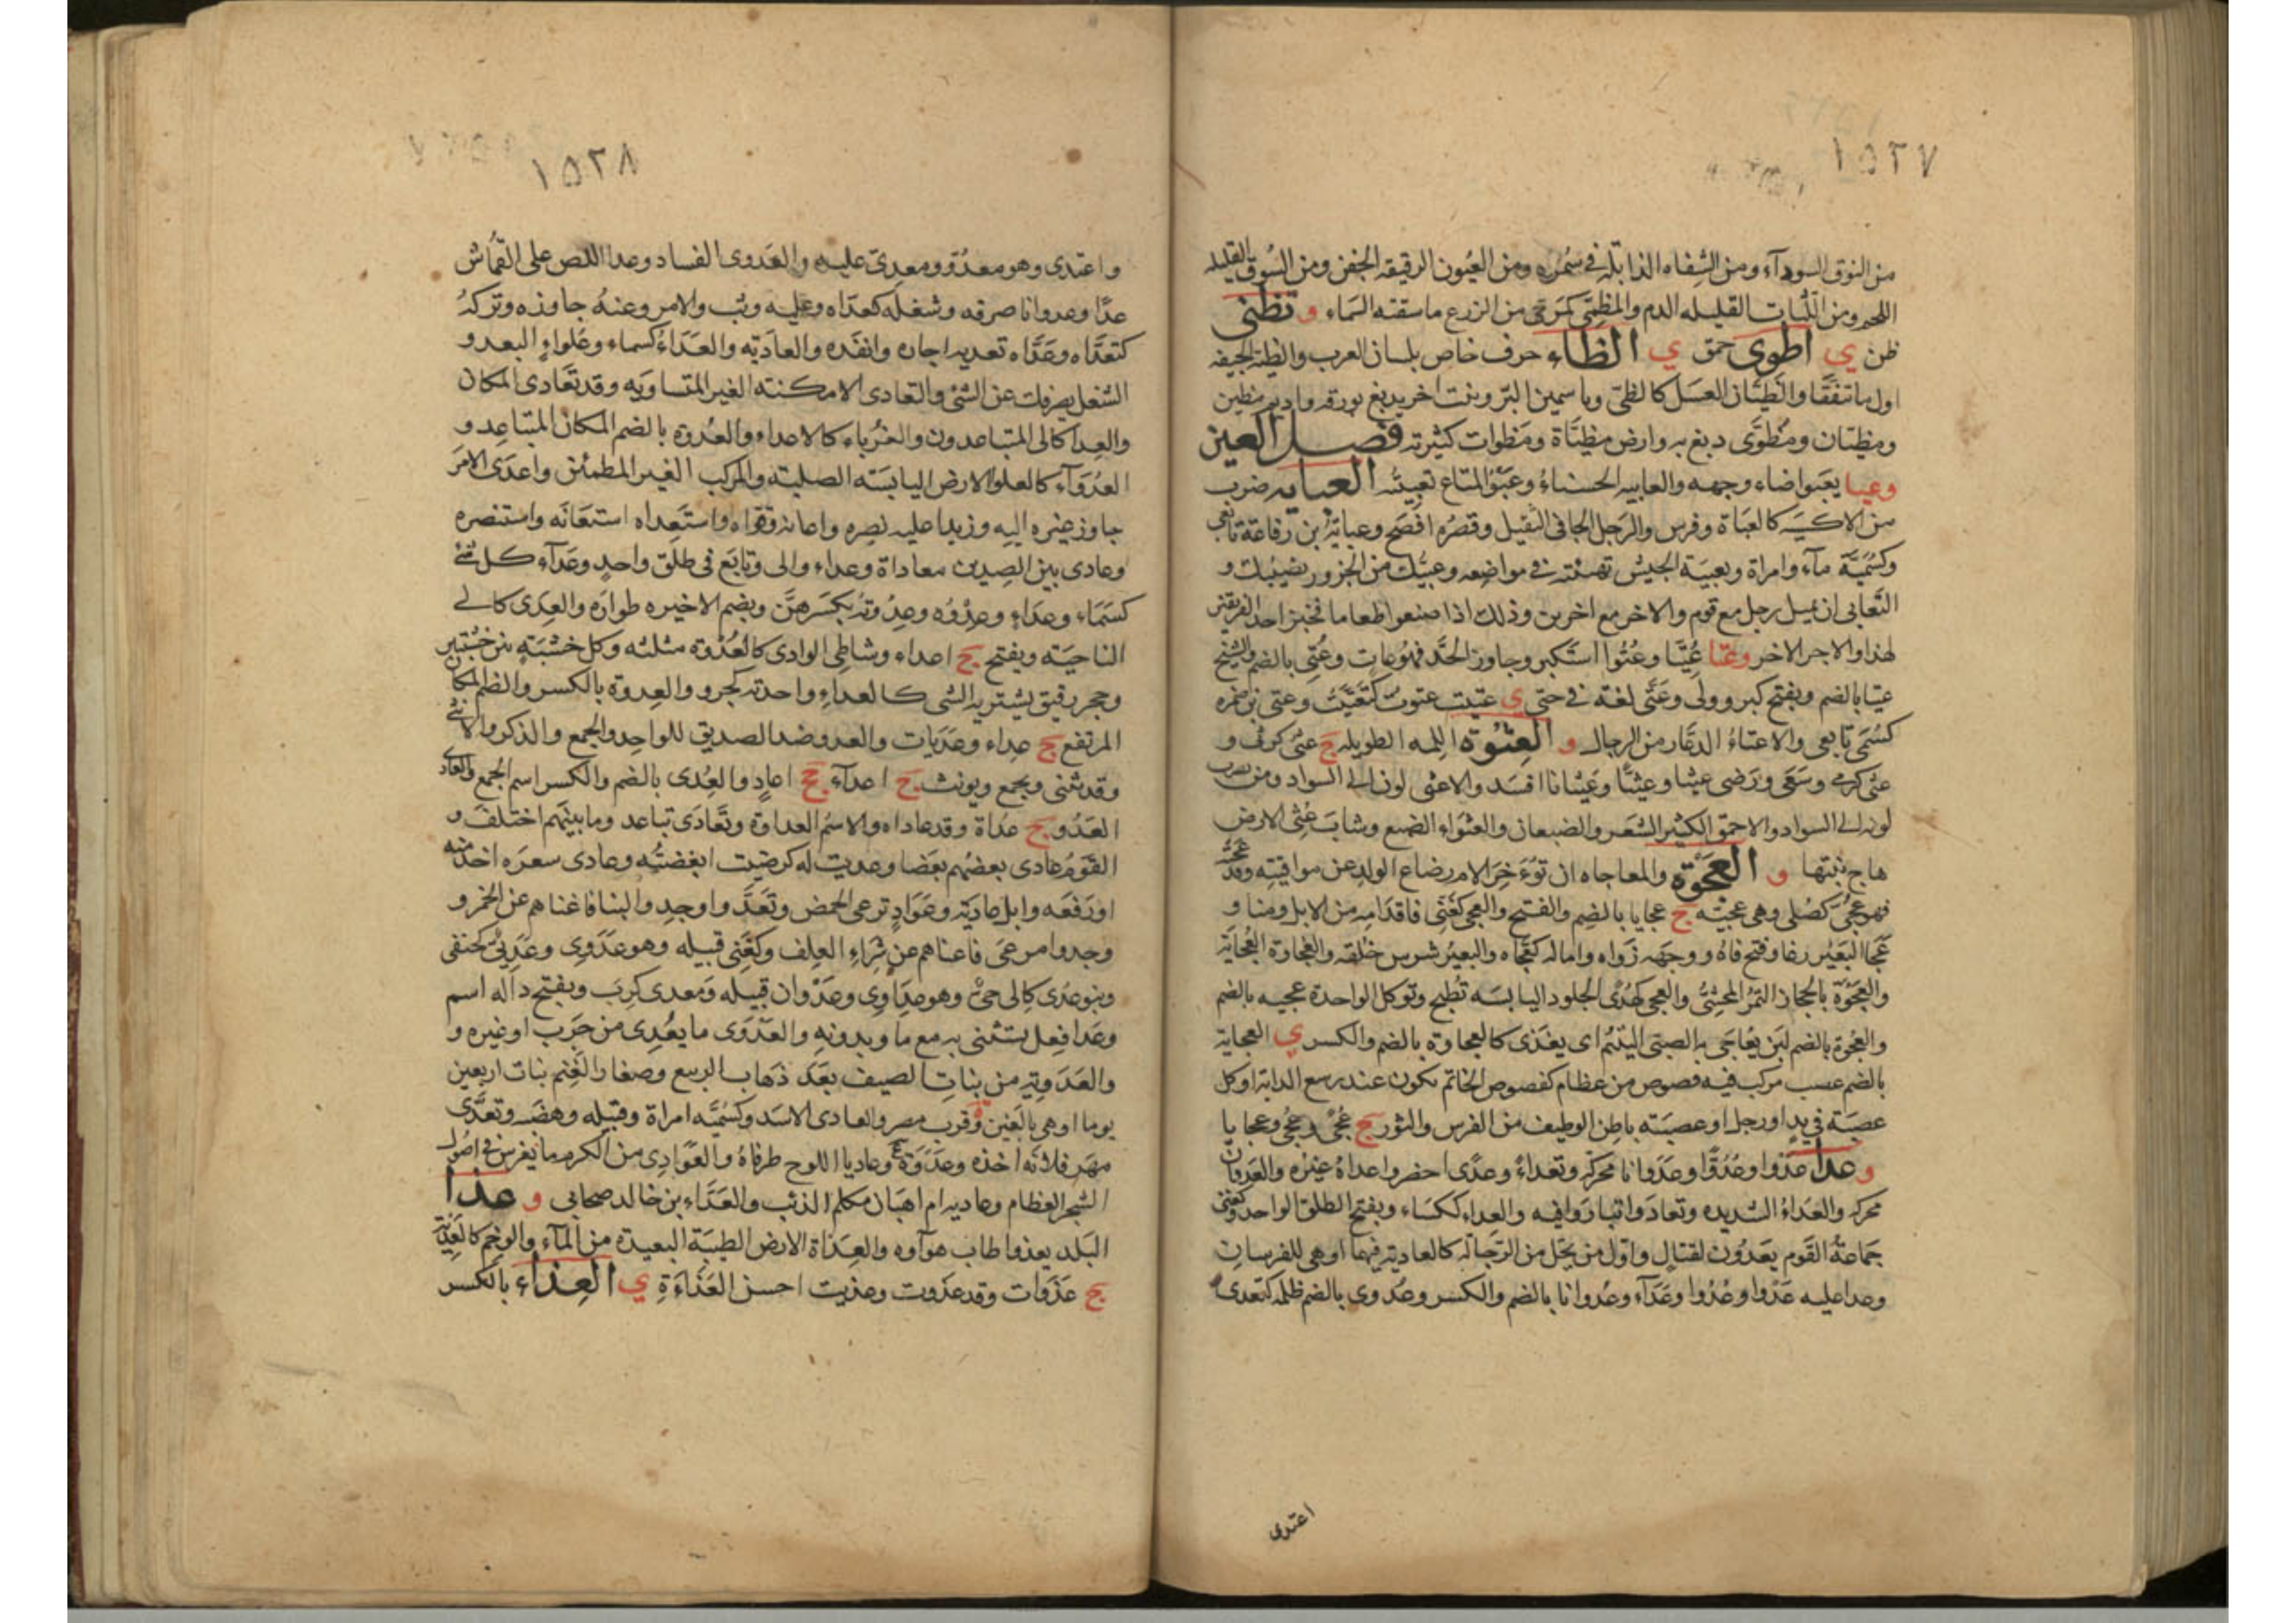 ١٥٢٧
من النوق السودآء ومن الشفاه الذابلة في سمرة ومن العيون الرقيقه الجفن ومن السوق القليله
اللحم ومن اللثات القليله الدم والمظمى كمرمى من الزرع ماسقته السماء و تظنى
ظن ي اظوى حمق ي الظاء حرف خاص بلسان العرب والظية الجيفه
اول ما تتفقا والظيان العسل كالظى وياسمين البر ونبت اخر يدبغ بورقه واديم مظين
ومظيان ومظوى دبغ به وارض مظياة ومظوات كثيرته فصل العين
وعبا يعبوا ضاء وجهه والعابيه الحسناء وعبو المتاع تعبيته العبايه ضرب
من الاكسيه كالعباة وفرس والرجل الجافي الثقيل وقصره افصح وعباية بن رفاعة تابعي
وكسمية مآء وامراة وتعبية الجيش تهيئته في مواضعه وعبيك من الجزور نصيبك و
التعابي ان يميل رجل مع قوم والاخر مع اخرين وذلك اذا صنعوا طعاما فخبز احد الفريقين
لهذا والاجر الاخر وعتا عتيا وعتوا استكبر وجاوز الحد فهو عات وعتي بالضم والشيخ
عتيا بالضم ويفتح كبر وولى وعتى لغة في حتى ي عتيت عتوت كتعتيت وعتى بن ضمره
كسمى تابعي والاعتاء الدعار من الرجال و العثوة اللمه الطويله ج عثى كربى و
عثى كرمى وسعى ورضى عثيا وعثيا وعثيانا افسد والاعثى لون الى السواد ومن يضرب
لونه الى السواد والاحمق الكثير الشعر والضبعان والعثواء الضبع وشاب عثى الارض
هاج نبتها و العجوة والمعاجاه ان تؤخر الام رضاع الولد عن مواقيته وقد عجته
فهو عجي كصلي وهي عجيه ج عجايا بالضم والفتح والعجي كغني فاقد امه من الابل ومنا و
عجا البعير رغا وفتح فاه ووجهه زواه واماله كعجاه والبعير شرس خلقه والعجاوة العجاية
والعجوة بالحجاز التمر المحشي والعجى كهدى الجلود اليابسه تطبخ وتوكل الواحدة عجيه بالضم
والعجوة بالضم لبن يعاجى به الصبي اليتيم اى يغذى كالعجاوة بالضم والكسر ي العجاية
بالضم عصب مركب فيه فصوص من عظام كفصوص الخاتم يكون عند رسغ الدابة او كل
عصبة في يد او رجل او عصبة باطن الوظيف من الفرس والثور ج عجى وعجي وعجايا
و عدا عدوا وعدوا وعدوانا محركه وتعداء وعدى احضر واعداه غيره والعدوان
محركه والعداء الشديده وتعادوا تباروا فيه والعداء ككساء ويفتح الطلق الواحد وكغني
جماعة القوم يعدون لقتال واول من يحمل من الرجاله كالعادية فيهما او هي للفرسان
وعدا عليه عدوا وعدوا وعدآء وعدوانا بالضم والكسر وعدوى بالضم ظلمه كتعدى
اعتدى
١٥٢٨
واعتدى وهو معدو ومعدى عليه والعدوى الفساد وعدا اللص على القماش
عدا وعدوانا صرفه وشغله كعداه وعليه وثب والامر وعنه جاوزه وتركه
كتعداه وعداه تعديه اجازه وانفذه والعاديه والعداء كسماء وغلواء البعد و
الشغل يصرفك عن الشئ والتعادى الامكنة الغير المتساويه وقد تعادى المكان
والعدا كالى المتباعدون والغرباء كالاعداء والعدوة بالضم المكان المتباعد و
العدوآء كالغلواء الارض اليابسه الصلبة والمركب الغير المطمئن واعدى الامر
جاوز غيره اليه وزيدا عليه نصره واعانه وقواه واستعداه استعانه واستنصره
وعادى بين الصيدين معاداة وعداء والى وتابع في طلق واحد وعدآء كل شئ
كسماء وعداء وعدوه وعدوته بكسرهن وبضم الاخيره طواره والعدى كالى
الناحيه ويفتح ج اعداء وشاطئ الوادى كالعدوة مثلثه وكل خشبة بين خشبتين
وحجر رقيق يستر به الشى كالعداء واحدته كجرو والعدوة بالكسر والضم المكان
المرتفع ج عداء وعديات والعدو ضد الصديق للواحد والجمع والذكر والانثى
وقد يثنى ويجمع ويونث ج اعدآء جج اعاد والعدى بالضم والكسر اسم الجمع والعاد
العدو ج عداة وقد عاداه والاسم العداوة وتعادى تباعد وما بينهم اختلف و
القوم عادى بعضهم بعضا وعديت له كرضيت ابغضته وعادى سعره اخذ منه
او رفعه وابل عادية وعواد ترعى الحمض وتعدوا وجدوا لبنا فاغناهم عن الخمر و
وجدوا مرعى فاغناهم عن شراء العلف وكغني قبيله وهو عدوى وعديي كحنفى
وبنو عدى كالى حي وهو عداوى وعدوان قبيله ومعدى كرب ويفتح داله اسم
وعدا فعل يستثنى به مع ما وبدونه والعدوى ما يعدى من جرب او غيره و
والعدوية من بنات الصيف بعد ذهاب الربيع وصغار الغنم بنات اربعين
يوما او هي بالغين وقرب مصر والعادى الاسد وكسميه امراة وقبيله وهضبه وتعدى
مهر فلانه اخذه وعدوة ع وعاديا اللوح طرفاه والعوادى من الكرم ما يغرس في اصول
الشجر العظام وعاديه ام اهبان مكلم الذئب والعداء بن خالد صحابى و عذا
البلد يعذوا طاب هوآوه والعذاة الارض الطيبة البعيدة من المآء والوخم كالعذية
ج عذوات وقد عذوت وعذيت احسن العذاءة ي العذاء بالكسر